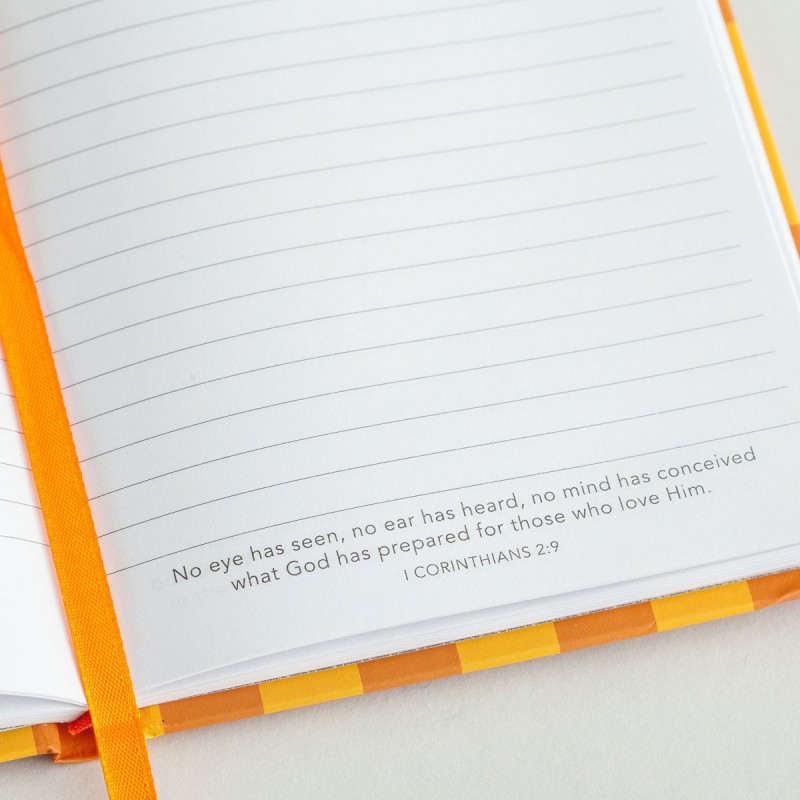 No eye has seen, no ear has heard, no mind has conceived
what God has prepared for those who love Him.
I CORINTHIANS 2:9